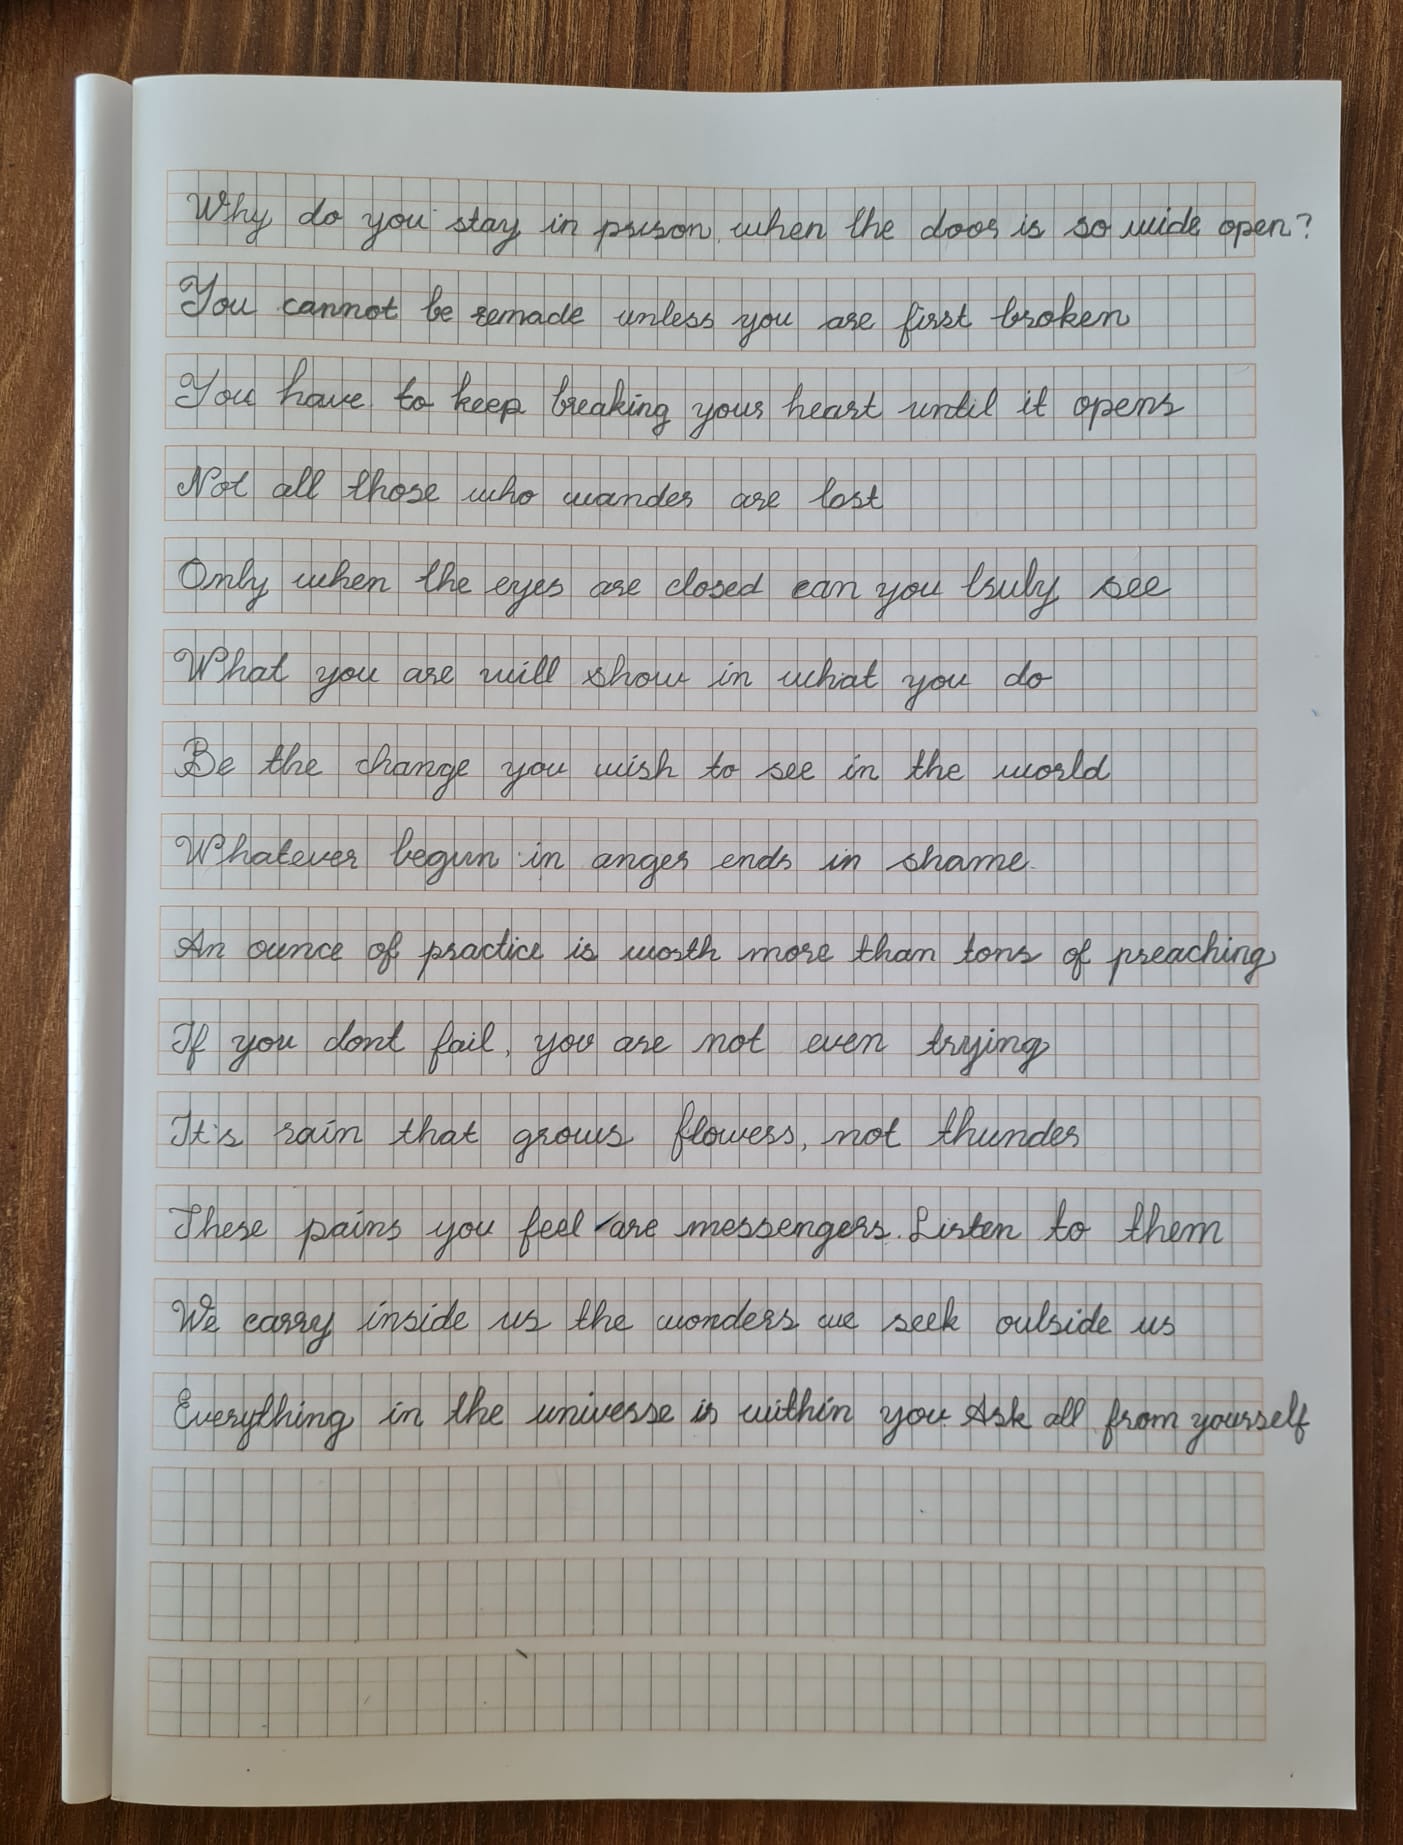 Why do you stay in prison when the door is so wide open?
You cannot be remade unless you are first broken
You have to keep breaking your heart until it opens
Not all those who wander are lost
Only when the eyes are closed can you truly see
What you are will show in what you do
Be the change you wish to see in the world
Whatever begun in anger ends in shame.
An ounce of practice is worth more than tons of preaching
If you dont fail, you are not even trying
It's rain that grows flowers, not thunder
These pains you feel are messengers. Listen to them
We carry inside us the wonders we seek outside us
Everything in the universe is within you. Ask all from yourself